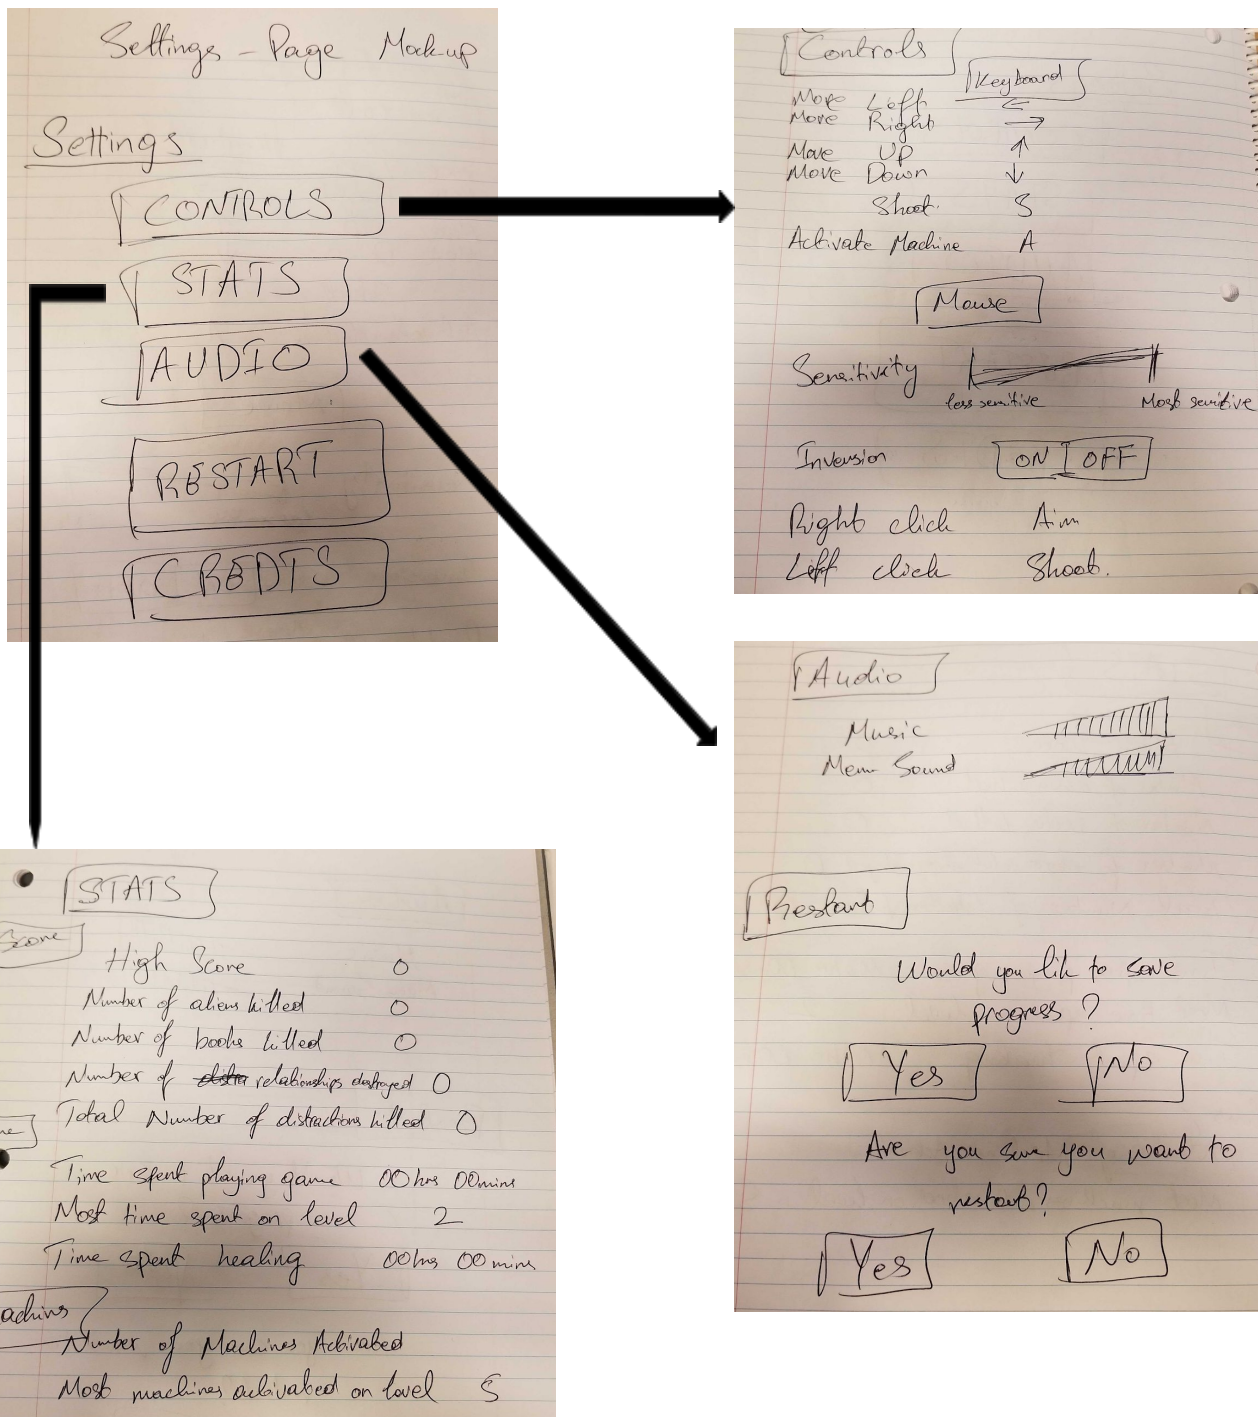 Settings - Page Mock-up
Settings
CONTROLS
STATS
AUDIO
RESTART
CREDTS
Controls
Keyboard
Move Left ←
Move Right →
Move Up ↑
Move Down ↓
Shoot. S
Activate Machine A
Mouse
Sensitivity
less sensitive Most sensitive
Inversion ON OFF
Right click Aim
Left click Shoot.
Audio
Music
Menu Sound
Restart
Would you like to save
progress?
Yes No
Are you sure you want to
restart?
Yes No
STATS
Score
High Score 0
Number of aliens killed 0
Number of books killed 0
Number of relationships destroyed 0
Total Number of distractions killed 0
Time spent playing game 00hrs 00mins
Most time spent on level 2
Time spent healing 00hrs 00mins
Number of Machines Activated
Most machines activated on level 5